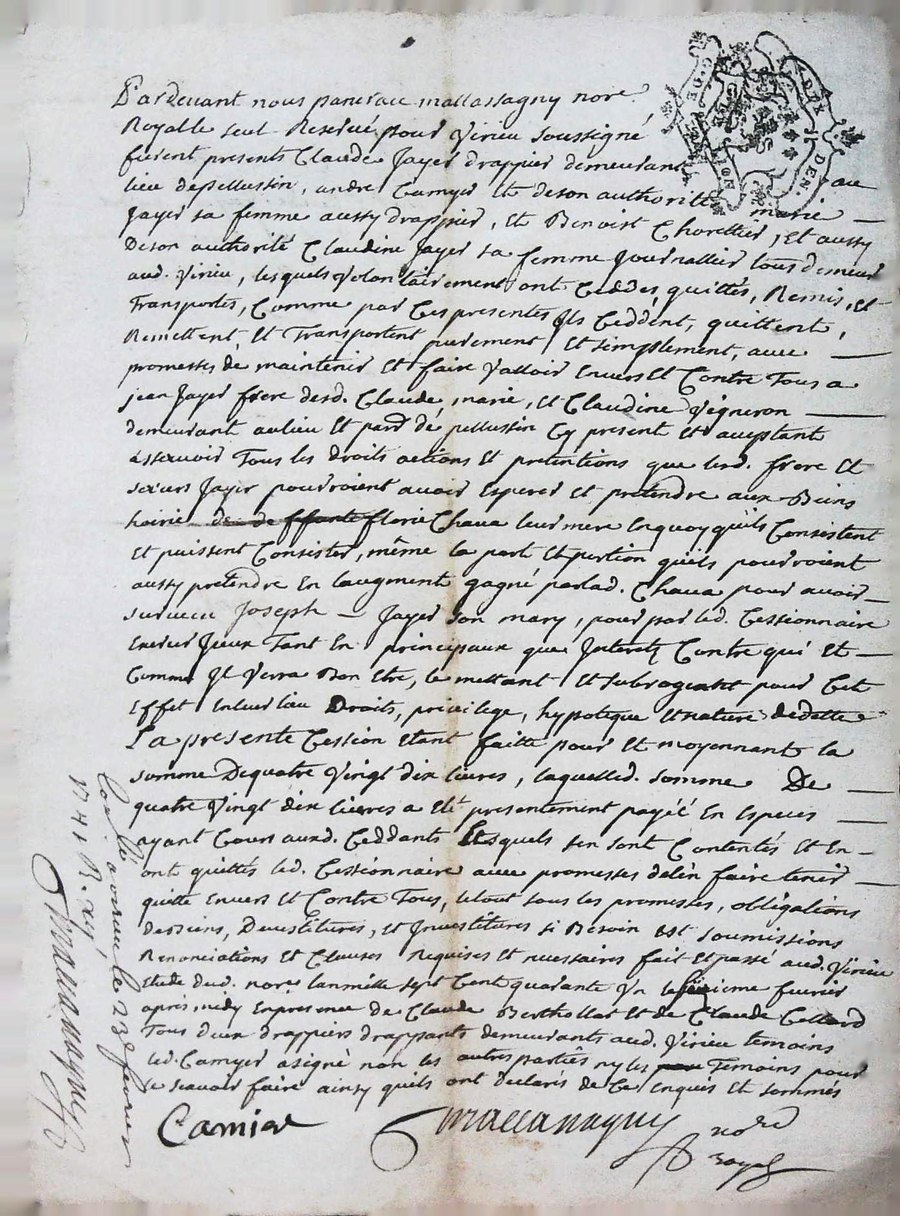 Pardevant nous pancrace mallassagny nore.
Royalle seul Reservé pour Virieu soussigné
furent presents Claude Jayer drappier demeurant au
lieu de pellussin, andre Camyer Et de son authorité marie
Jayer sa femme aussy drappier, Et Benoist Chorellier, Et aussy
De son authorité Claudine Jayer sa femme Journallier tous demeur
aud. Virieu, lesquels Volontairement ont Ceddés, quittés, Remis, Et
Transportés, Comme par Ces presentes Ils Ceddent, quittent,
Remettent, Et Transportent purement Et simplement, avec
promesses de maintenir Et faire Valloir Envers Et Contre Tous a
jean Jayer frere desd. Claude, marie, Et Claudine Vigneron
demeurant au lieu Et paroisse de pellussin Cy present Et acceptant
assavoir Tous les Droits actions Et pretentions que lesd. frere Et
soeurs Jayer pourroient avoir Esperer Et pretendre aux Biens
hoirie de deffante florie Chava leur mere En quoy quils Consistent
Et puissent Consister, même la part Et portion quils pourroient
aussy pretendre En laugment gagné par lad. Chava pour avoir
survecu Joseph Jayer son mary, pour par led. Cessionnaire
Exercer Jceux Tant En principaux que Interets Contre qui Et
Comme Il Verra Bon Etre, le mettant Et subrogeant pour Cet
Effet En leur lieu Droits, privilege, hypotique Et nature de dette
La presente Cession Etant faitte pour Et moyennant la
somme De quatre Vingt dix livres, laquelled. somme De
quatre Vingt dix livres a Eté presentement payéé En Especes
ayant Cours auxd. Ceddants Lesquels sen sont Contentés Et En
ont quittés led. Cessionnaire avec promesses de len faire tenir
quitte Envers Et Contre Tous, le tout sous les promesses, obligations
de Biens, Devestitures, Et Investitures si Besoin Est soumissions
Renonciations Et Clauses Requises Et necessaires fait Et passé aud. Virieu
Etude dud. nore. lan mille sept Cent quarante Un le fevrier
apres midy En presence de Claude Berthollat Et de Claude Cellard
Tous deux drappiers drappants demeurants aud. Virieu temoins
led. Camyer a signé non les autres parties ny les Temoins pour
ne scavoir faire ainsy quils ont declarés de Ce Enquis Et sommés
Camier mallassagny nore
royal
Conllé a virieu le 23e fevrier
1741 R.
mallassagny